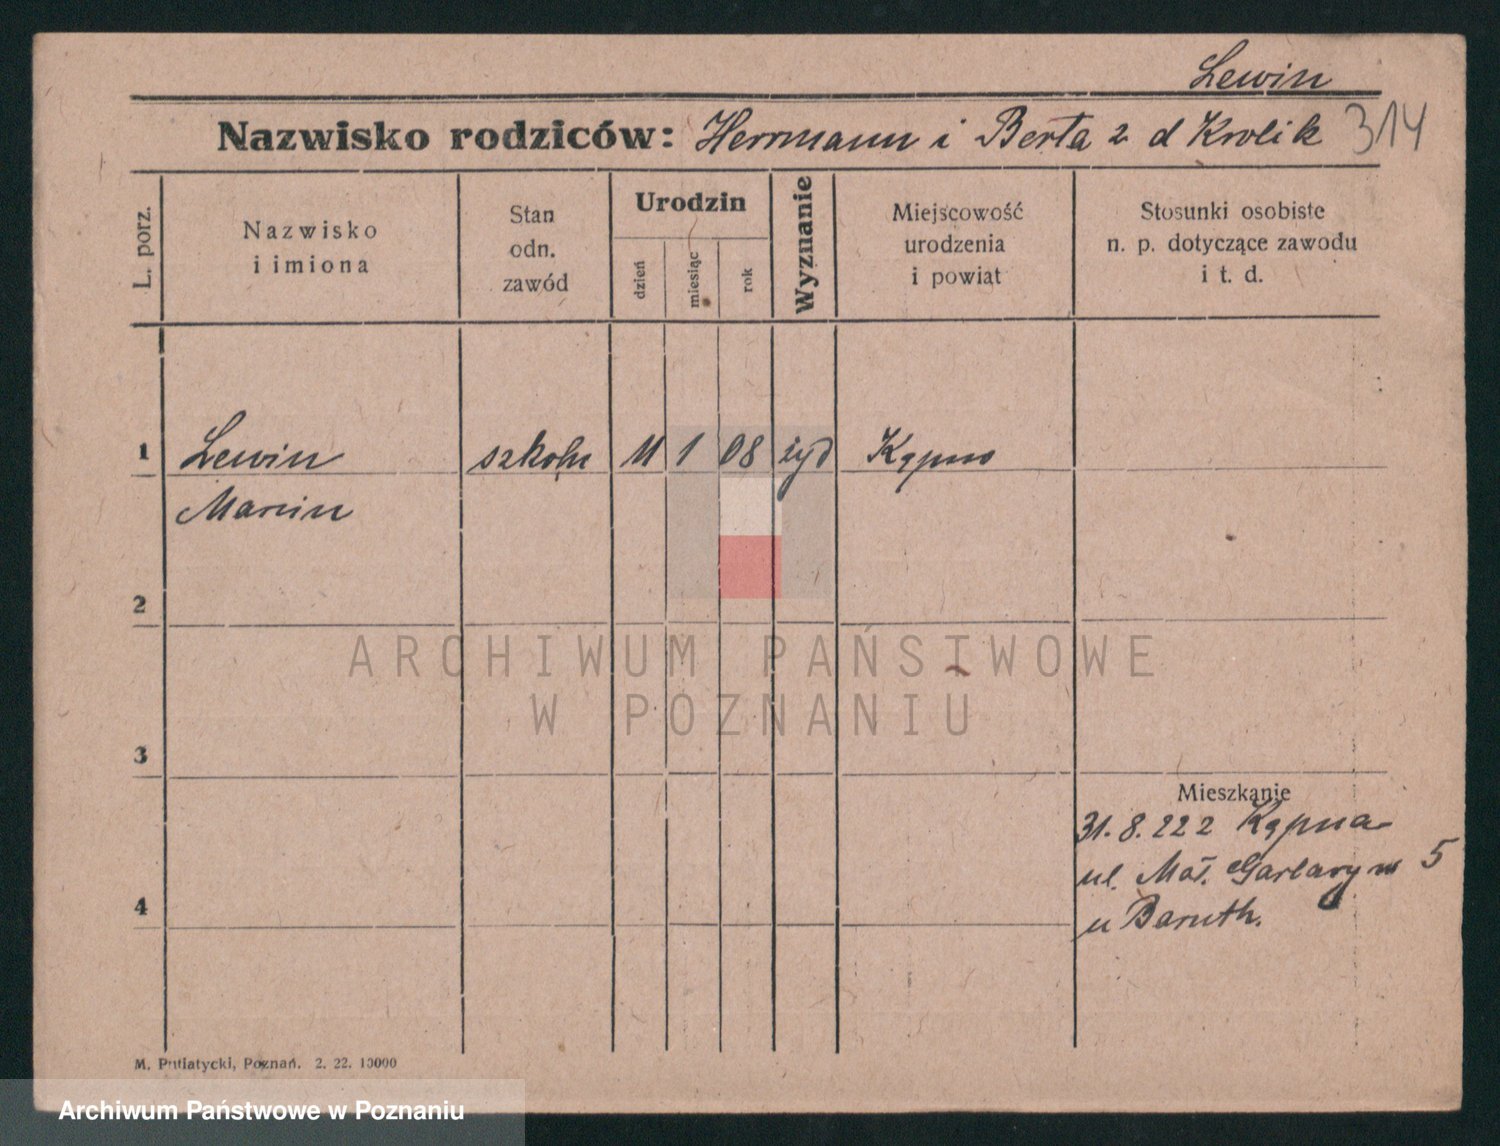 Lewin
Nazwisko rodziców: Herrmann i Berta z d Krolik 314
L. porz.
Nazwisko
i imiona
Stan
odn.
zawód
Urodzin
dzień
miesiąc
rok
Wyznanie
Miejscowość
urodzenia
i powiat
Stosunki osobiste
n. p. dotyczące zawodu
i t. d.
1 Lewin szkoln 11 1 08 żyd Kępno
Marcin
2
ARCHIWUM PAŃSTWOWE
W POZNANIU
3
Mieszkanie
31. 8. 22 z Kępna
ul. Mał. Garbary 5
4
u Baruth.
M. Putiatycki, Poznań. 2. 22. 10000
Archiwum Państwowe w Poznaniu